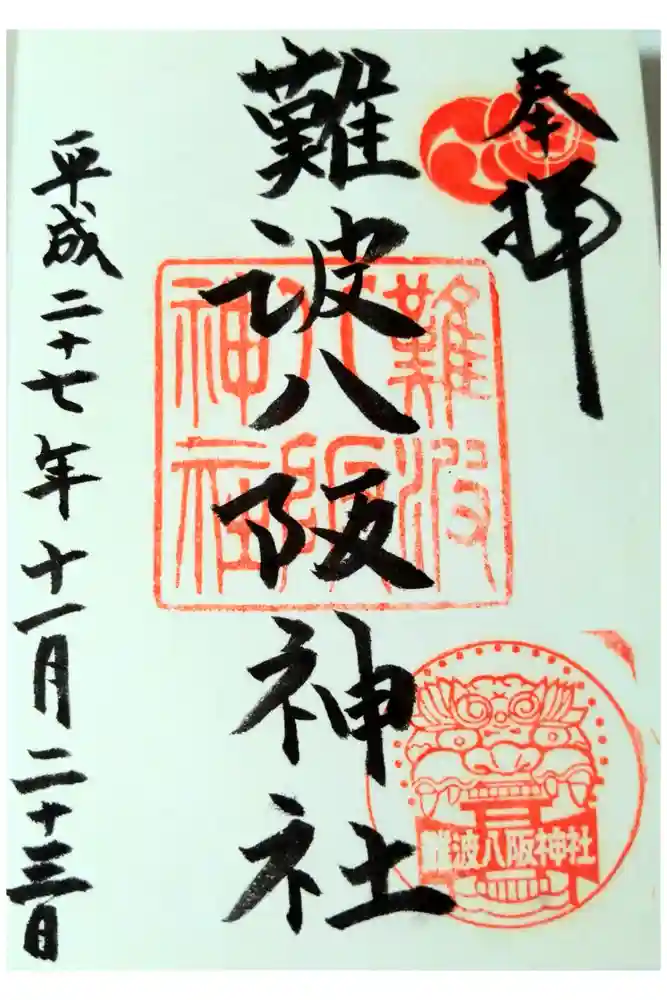 奉拝
難波八阪神社
平成二十七年十一月二十三日
難波
八阪
神社
難波八阪神社